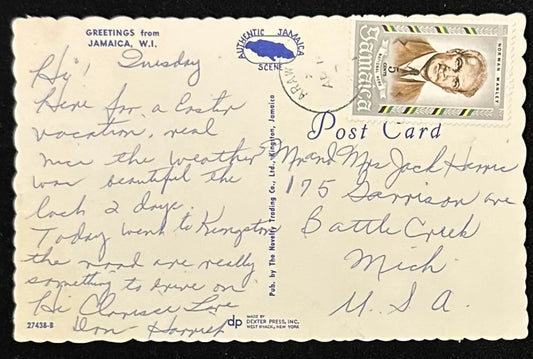 GREETINGS from
JAMAICA, W.I.
AUTHENTIC JAMAICA
SCENE
Tuesday
Hi!
Here for a Easter
vacation, real
nice the weather
was beautiful the
last 2 days.
Today went to Kingston
the road are really
something to drive on
Hi Clarisse Love
Don
27438-B
Pub. by The Novelty Trading Co., Ltd., Kingston, Jamaica
dp
MADE BY
DEXTER PRESS, INC.
WEST NYACK, NEW YORK
NORMAN MANLEY
NATIONAL HERO
5 CENTS
Jamaica
ARAW
Post Card
Mr and Mrs Jack Harris
175 Garrison ave
Battle Creek
Mich.
U.S.A.